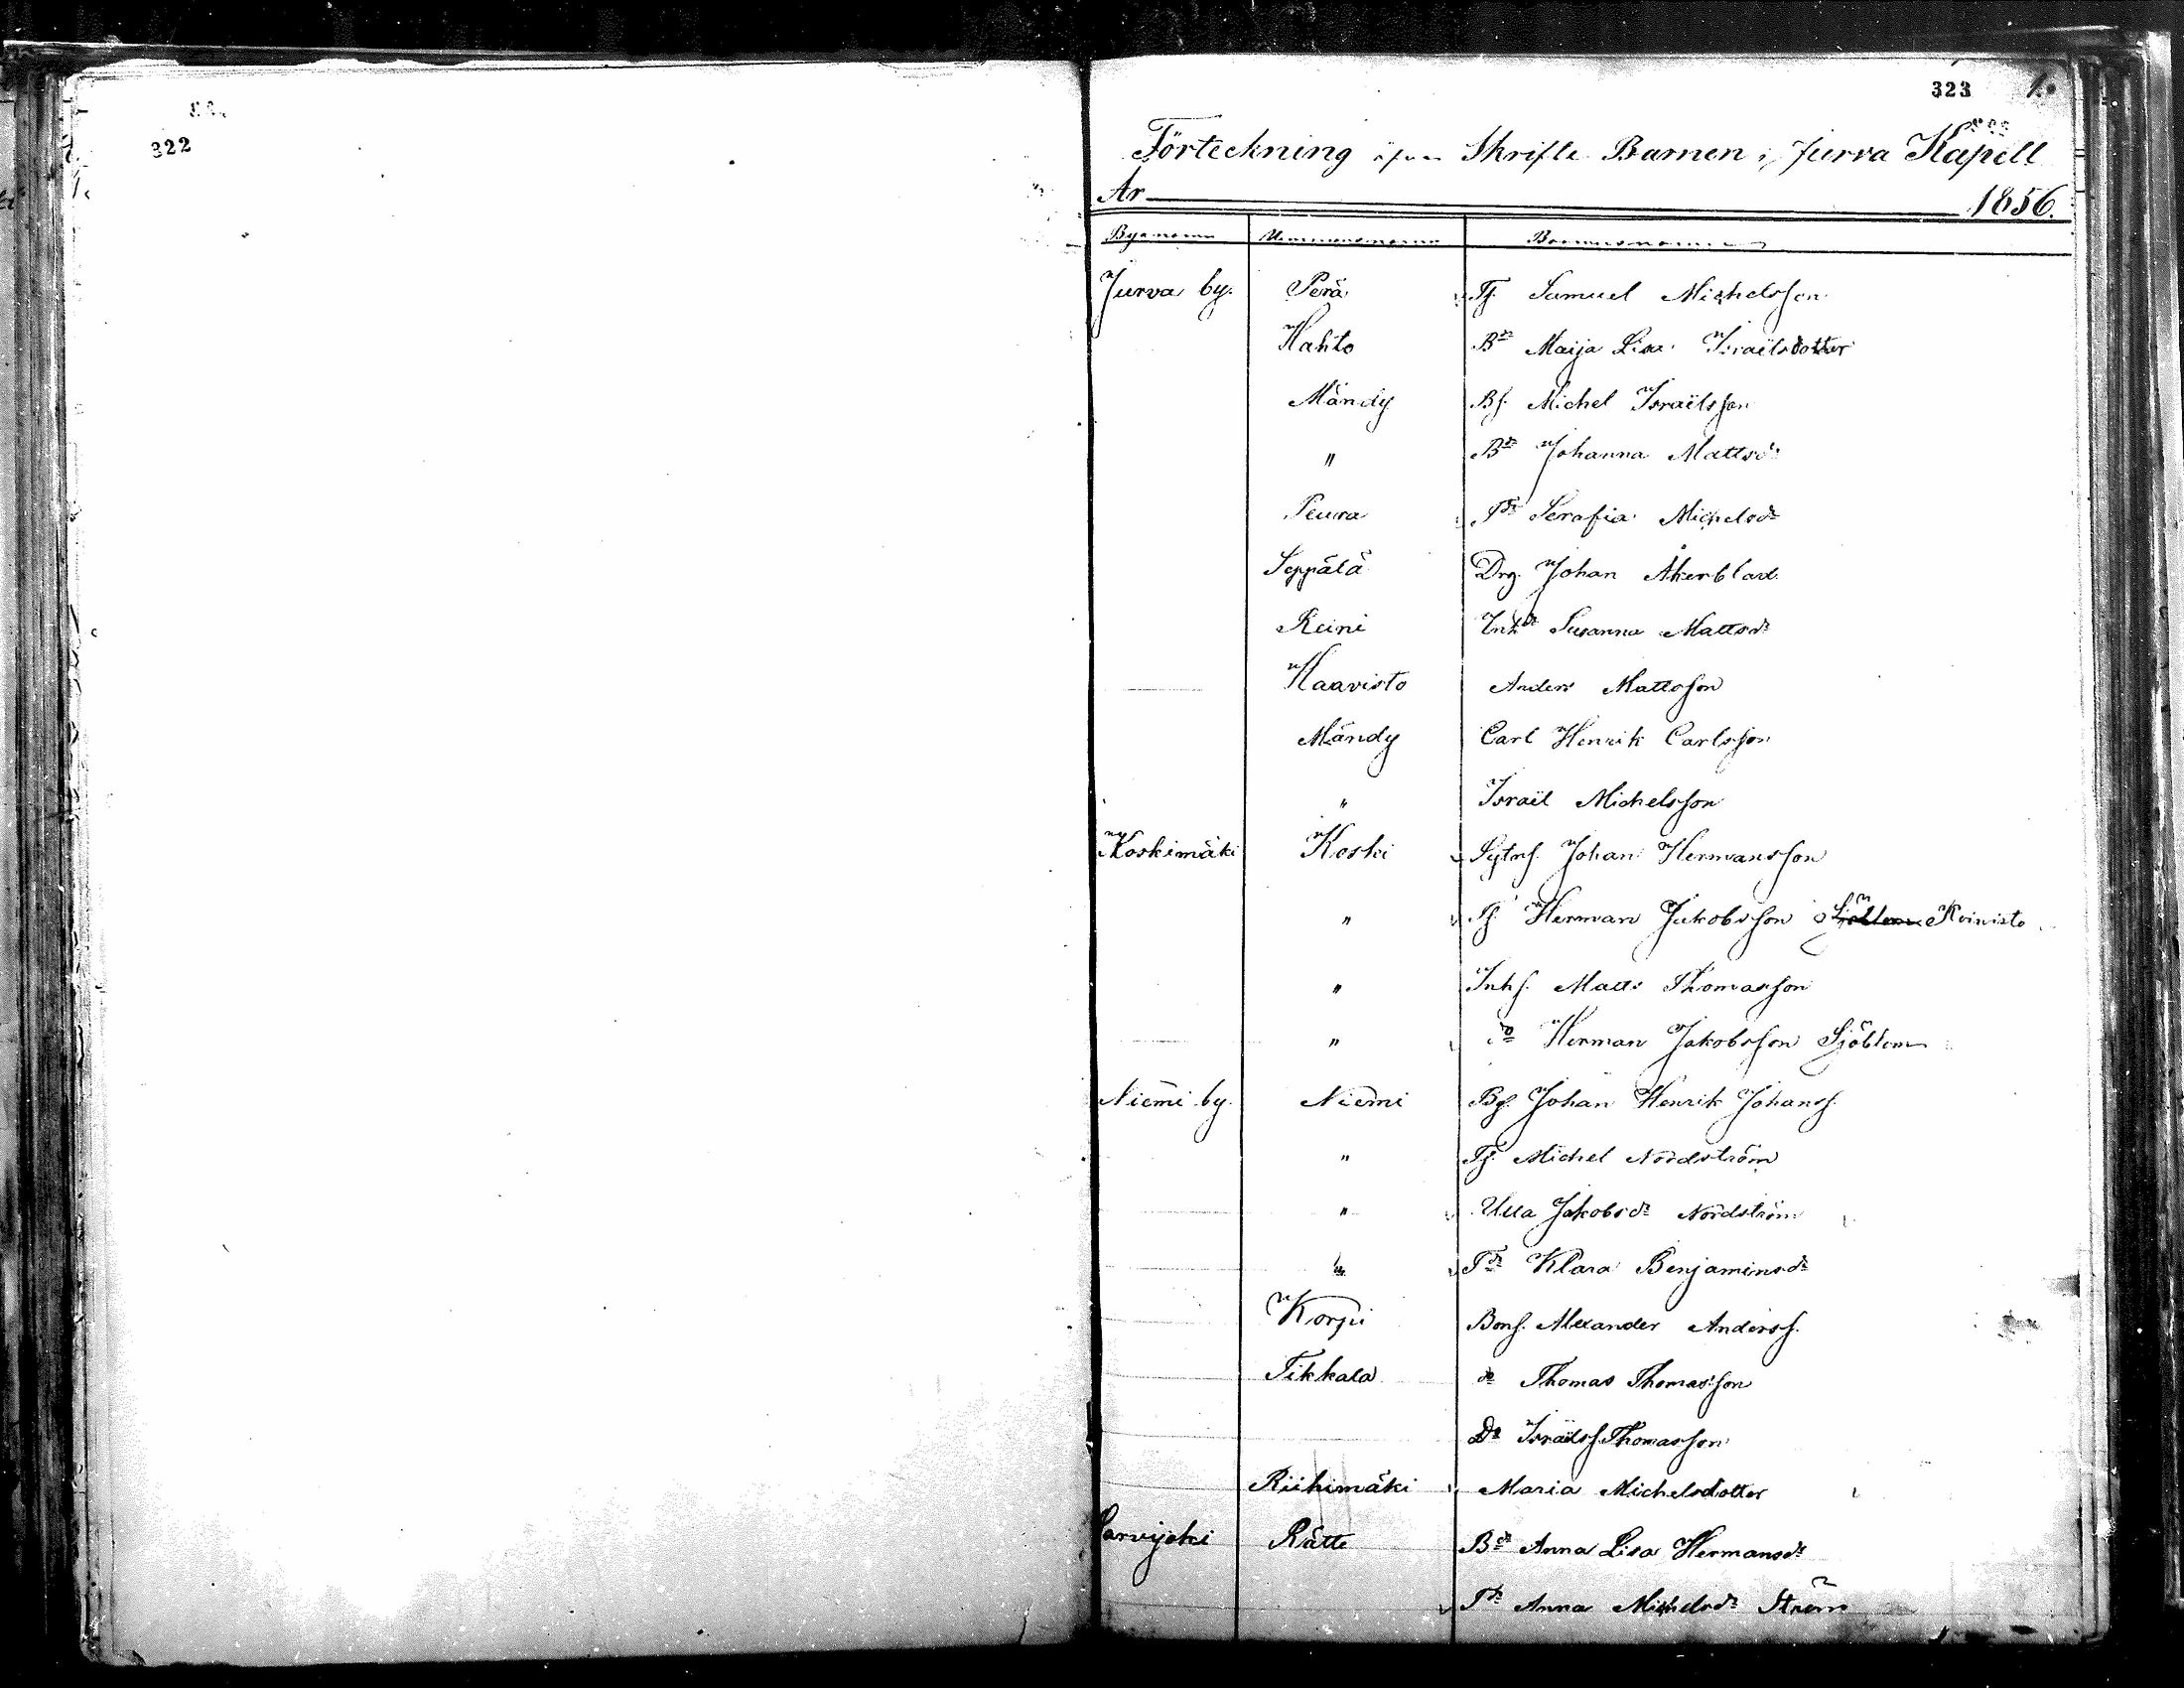 322
323 1.
Förteckning öfver Skrifte Barnen i Jurva Kapell
År 1856.
Byanamn Hemmansnamn Barnens namn
Jurva by. Perä Tj. Samuel Michelsson
Hahto Bdr Maija Lisa Israëlsdotter
Mändy Bs. Michel Israëlsson
" Bdr Johanna Mattsdr
Peura Tdr Serafia Michelsdr
Seppälä Drg. Johan Åkerblad
Reini Inhdr Susanna Mattsdr
Haavisto Anders Mattsson
Mändy Carl Henrik Carlsson
" Israël Michelsson
Koskimäki Koski Sytns. Johan Hermansson
" Tj Herman Jakobsson Sjöblom Koivisto
" Inhs. Matts Thomasson
" do Herman Jakobsson Sjöblom
Niemi by. Niemi Bs. Johan Henrik Johanss.
" Tj. Michel Nordström
" Ulla Jakobsdr Nordström
" Tdr Klara Benjaminsdr
Korpi Bons. Alexander Anderss.
Tikkala do Thomas Thomasson
Do Israëls Thomasson
Riihimäki Maria Michelsdotter
Sarvijoki Rätte Bdr Anna Lisa Hermansdr
Tdr Anna Michelsdr Ström